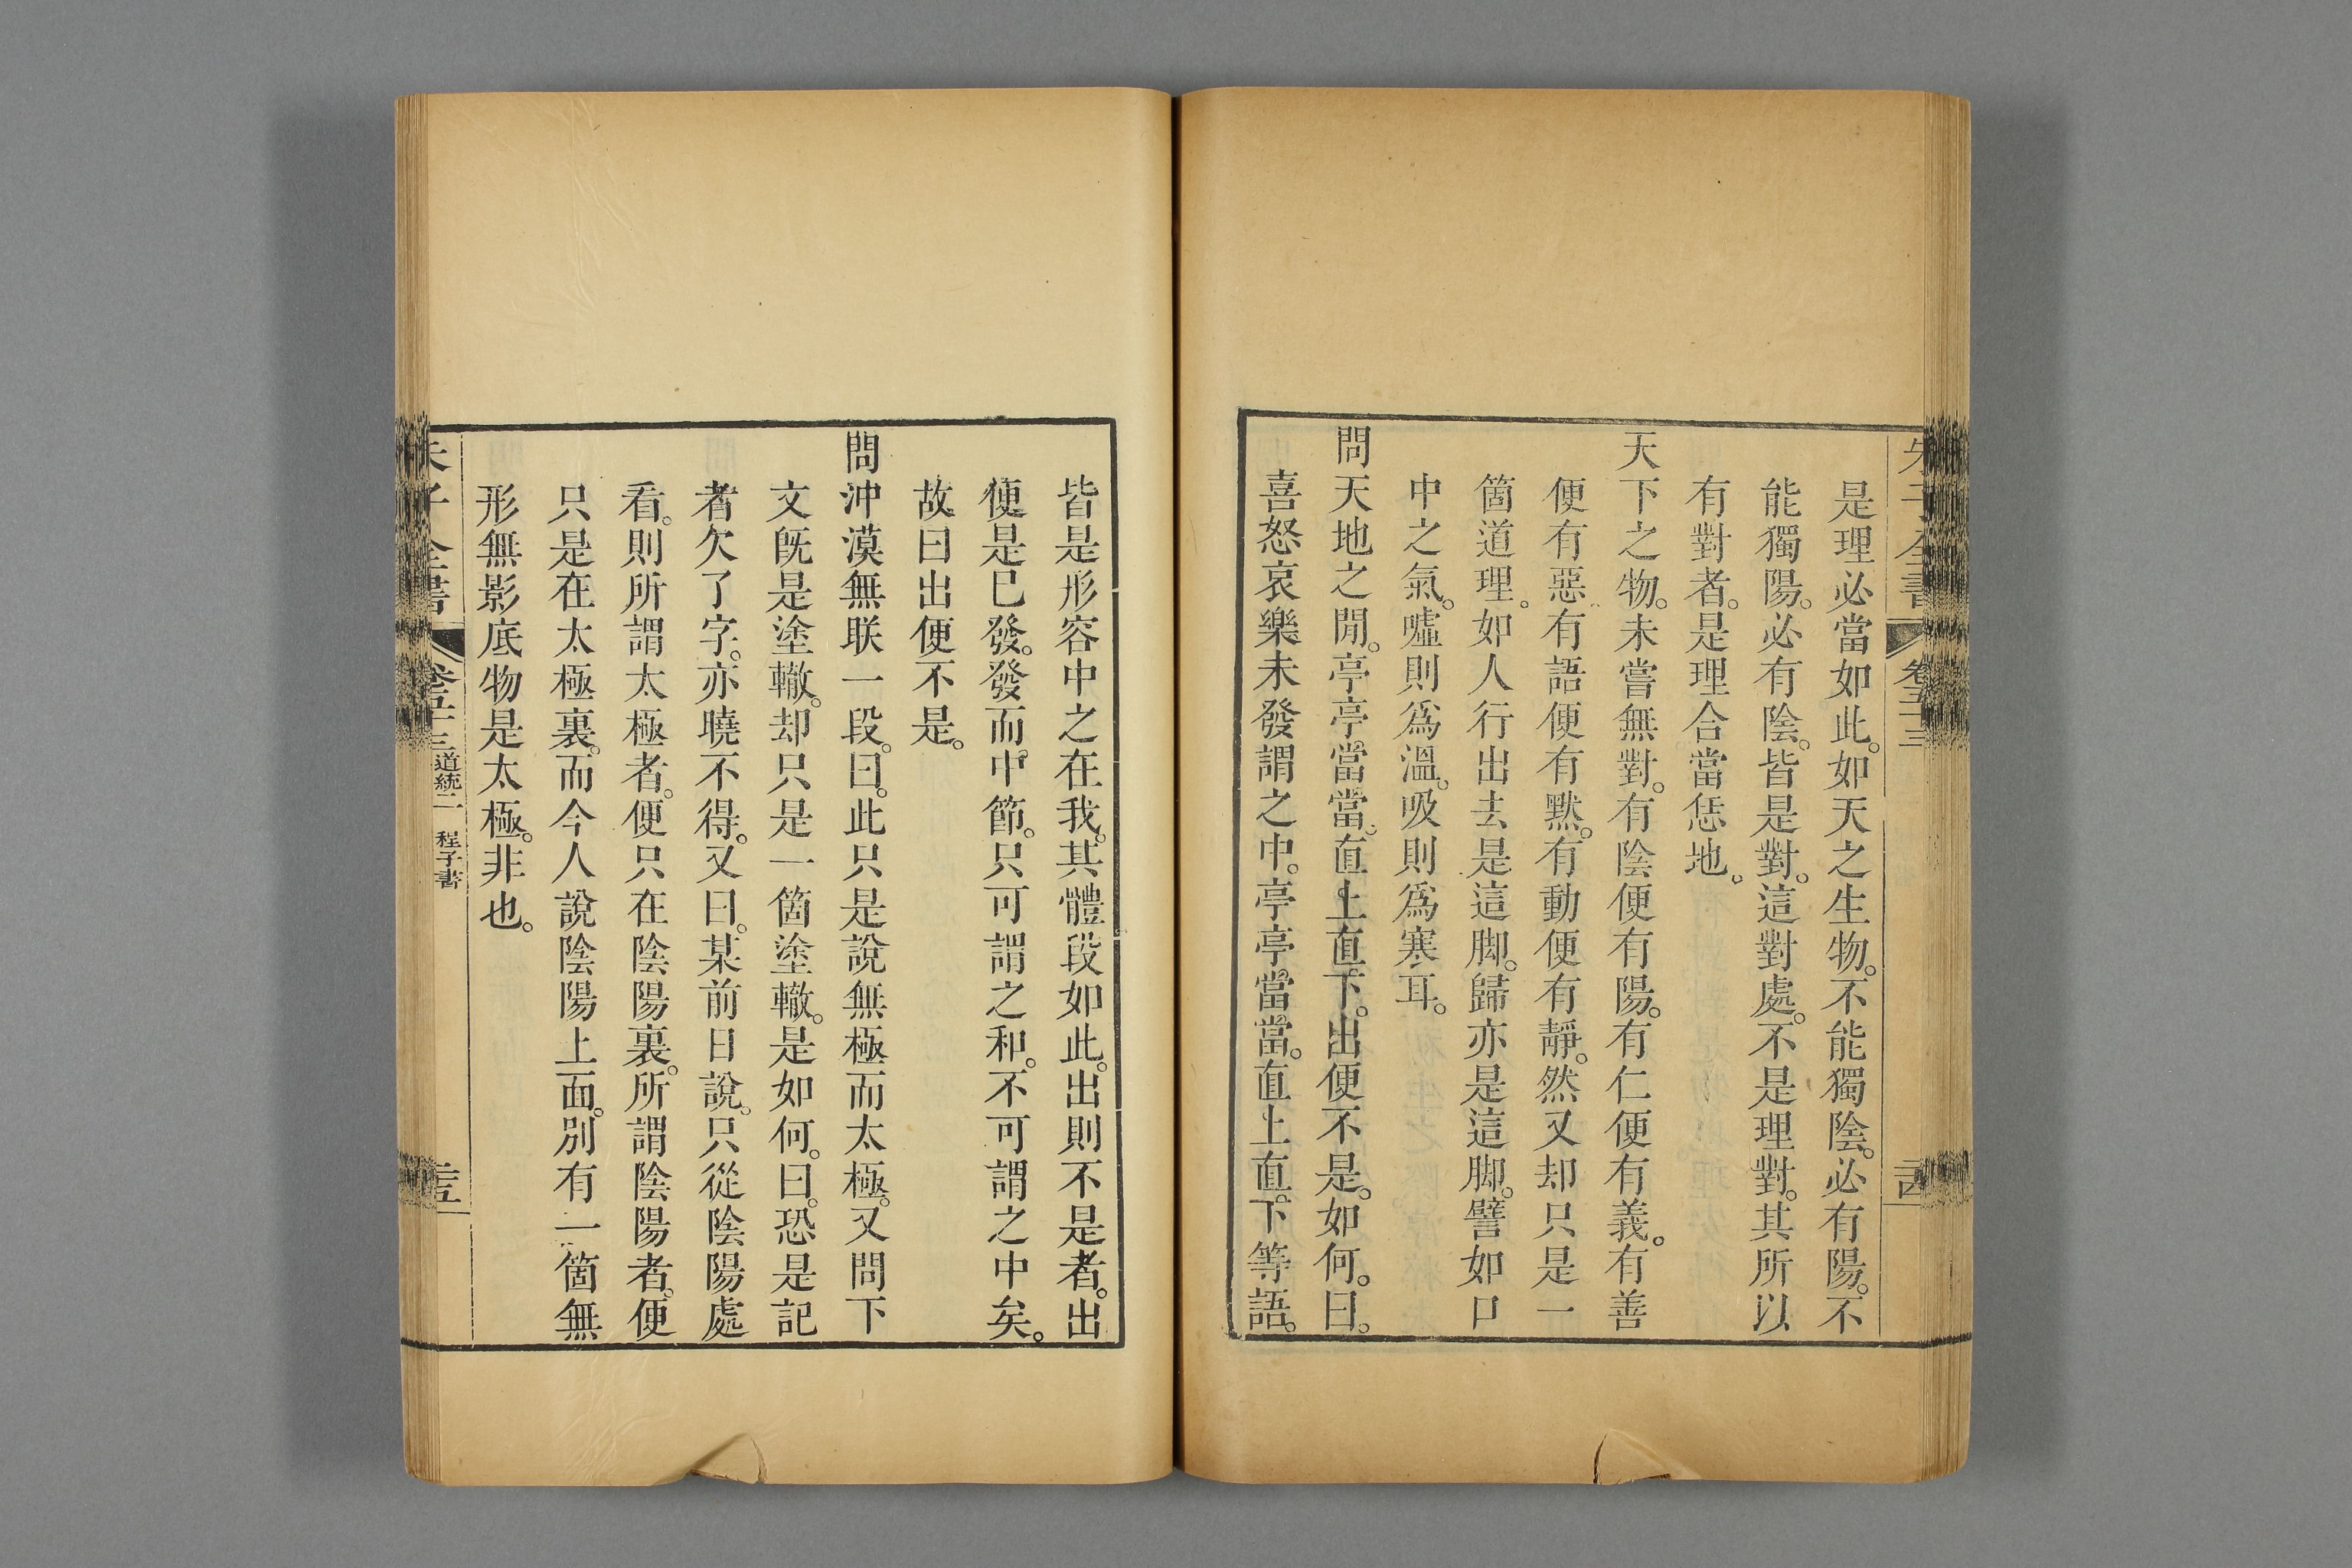 朱子全書 卷五十三
是理必當如此。如天之生物。不能獨陰。必有陽。不
能獨陽。必有陰。皆是對。這對處。不是理對。其所以
有對者。是理合當恁地。
天下之物。未嘗無對。有陰便有陽。有仁便有義。有善
便有惡。有語便有默。有動便有靜。然又却只是一
箇道理。如人行出去是這脚。歸亦是這脚。譬如口
中之氣。噓則爲溫。吸則爲寒耳。
問天地之閒。亭亭當當。直上直下。出便不是。如何。曰。
喜怒哀樂未發謂之中。亭亭當當。直上直下等語。
皆是形容中之在我。其體段如此。出則不是者。出
便是已發。發而中節。只可謂之和。不可謂之中矣。
故曰出便不是。
問沖漠無朕一段。曰。此只是說無極而太極。又問下
文旣是塗轍。却只是一箇塗轍。是如何。曰。恐是記
者欠了字。亦曉不得。又曰。某前日說。只從陰陽處
看。則所謂太極者。便只在陰陽裏。所謂陰陽者。便
只是在太極裏。而今人說陰陽上面。別有一箇無
形無影底物是太極。非也。
朱子全書 卷五十三 道統二 程子書